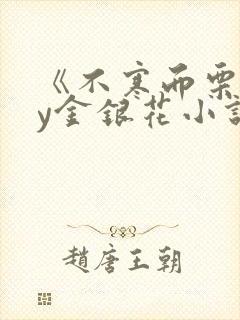 《不寒而栗
y金银花小說
趙唐王朝